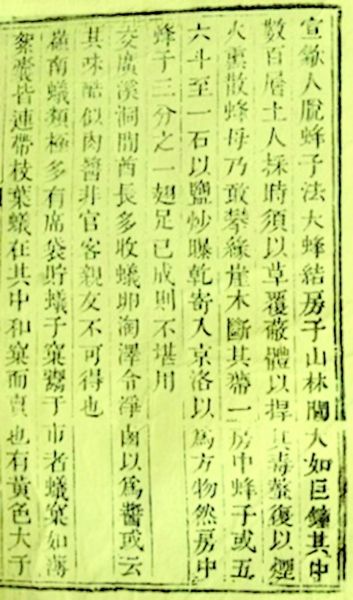 宣歙人脫蜂子法大蜂結房于山林間大如巨鐘其中
數百層土人採時須以草覆蔽體以捍其毒螫復以煙
火熏散蜂母乃敢攀緣崖木斷其蔕一房中蜂子或五
六斗至一石以鹽炒曝乾寄入京洛以為方物然房中
蜂子三分之一翅足已成則不堪用
交廣溪洞間酋長多收蟻卵淘澤令淨鹵以為醬或云
其味酷似肉醬非官客親友不可得也
嶺南蟻類極多有席袋貯蟻子窠鬻于市者蟻窠如薄
絮囊皆連帶枝葉蟻在其中和窠而賣也有黃色大子